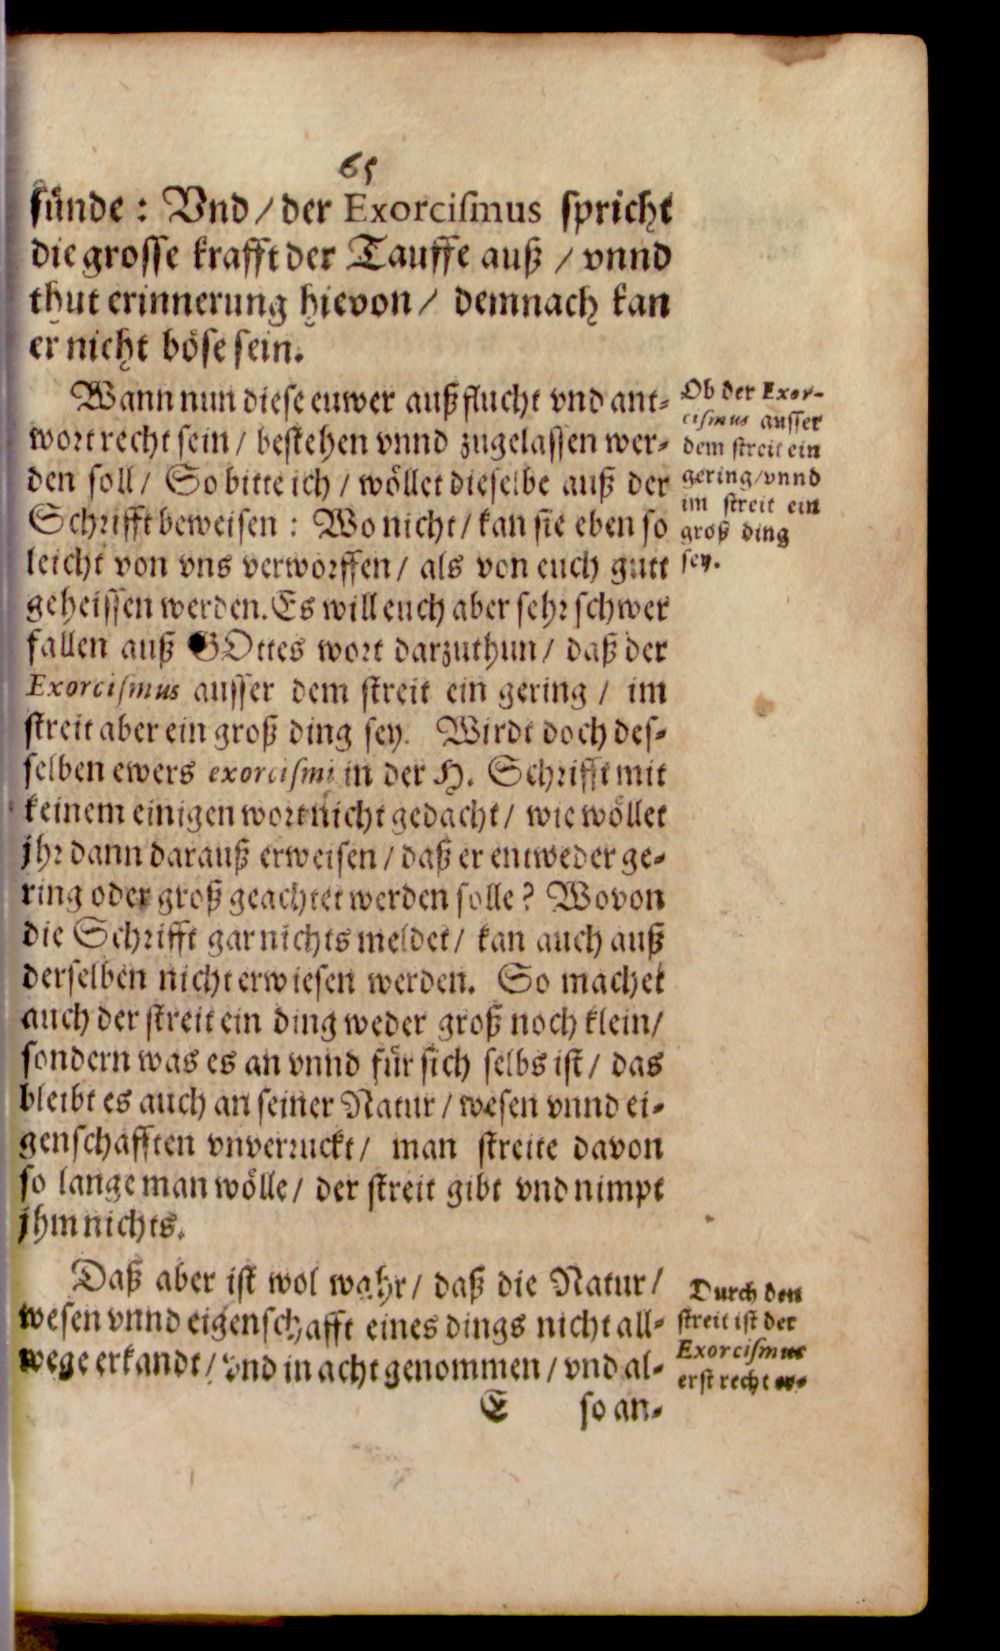 65
sünde: Vnd / der Exorciſmus spricht
die grosse krafft der Tauffe auß / vnnd
thut erinnerung hievon / demnach kan
er nicht böse sein.
Wann nun diese euwer außflucht vnd ant-
wort recht sein / bestehen vnnd zugelassen wer-
den soll / So bitte ich / wöllet dieselbe auß der
Schrifft beweisen : Wo nicht / kan sie eben so
leicht von vns verworffen / als von euch gutt
geheissen werden. Es will euch aber sehr schwer
fallen auß GOttes wort darzuthun / daß der
Exorciſmus ausser dem streit ein gering / im
streit aber ein groß ding sey. Wirdt doch des-
selben ewers exorciſmi in der H. Schrifft mit
keinem einigen wort nicht gedacht / wie wöllet
jhr dann darauß erweisen / daß er entweder ge-
ring oder groß geachtet werden solle? Wovon
die Schrifft gar nichts meldet / kan auch auß
derselben nicht erwiesen werden. So machet
auch der streit ein ding weder groß noch klein /
sondern was es an vnnd für sich selbs ist / das
bleibt es auch an seiner Natur / wesen vnnd ei-
genschafften vnverruckt / man streite davon
so lange man wölle / der streit gibt vnd nimpt
jhm nichts.
Daß aber ist wol wahr / daß die Natur /
wesen vnnd eigenschafft eines dings nicht all-
wege erkandt / vnd in acht genommen / vnd al-
E so an-
Ob der Exor-
ciſmus ausser
dem streit ein
gering / vnnd
im streit ein
groß ding
sey.
Durch den
streit ist der
Exorciſmus
erst recht